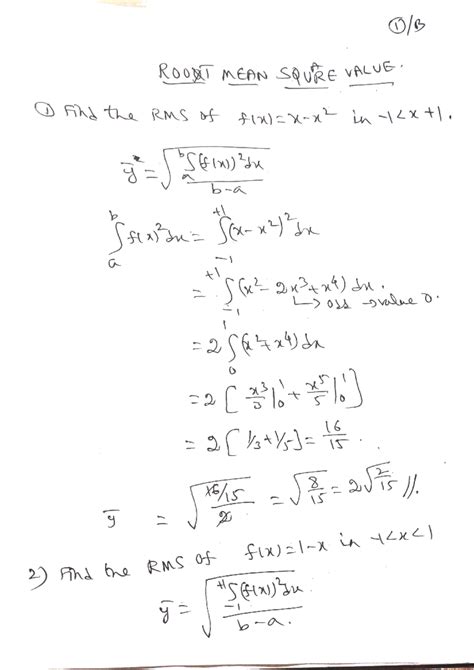 ①/B
ROOT MEAN SQUARE VALUE.
① Find the RMS of f(x)=x-x² in -1<x+1.
ȳ = √(a∫b (f(x))² dx / b-a)
a∫b f(x)² dx = -1∫+1 (x-x²)² dx
= -1∫+1 (x² - 2x³ + x⁴) dx.
↳ odd → value 0.
= 2 0∫1 (x² + x⁴) dx
= 2 [ x³/3 |₀¹ + x⁵/5 |₀¹ ]
= 2 [ 1/3 + 1/5 ] = 16/15.
ȳ = √(16/15 / 2) = √(8/15) = 2√(2/15) //.
2) Find the RMS of f(x)=1-x in -1<x<1
ȳ = √(-1∫+1 (f(x))² dx / b-a.)